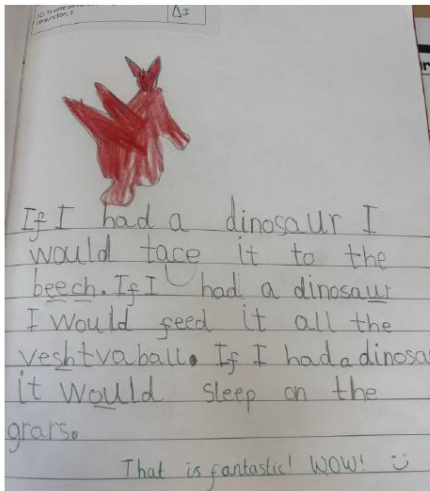 conjunctions
ΔI
If I had a dinosaur I
would tace it to the
beech. If I had a dinosaur
I would feed it all the
veshtvaball. If I had a dinosa
it would sleep on the
grars.
That is fantastic! WOW!